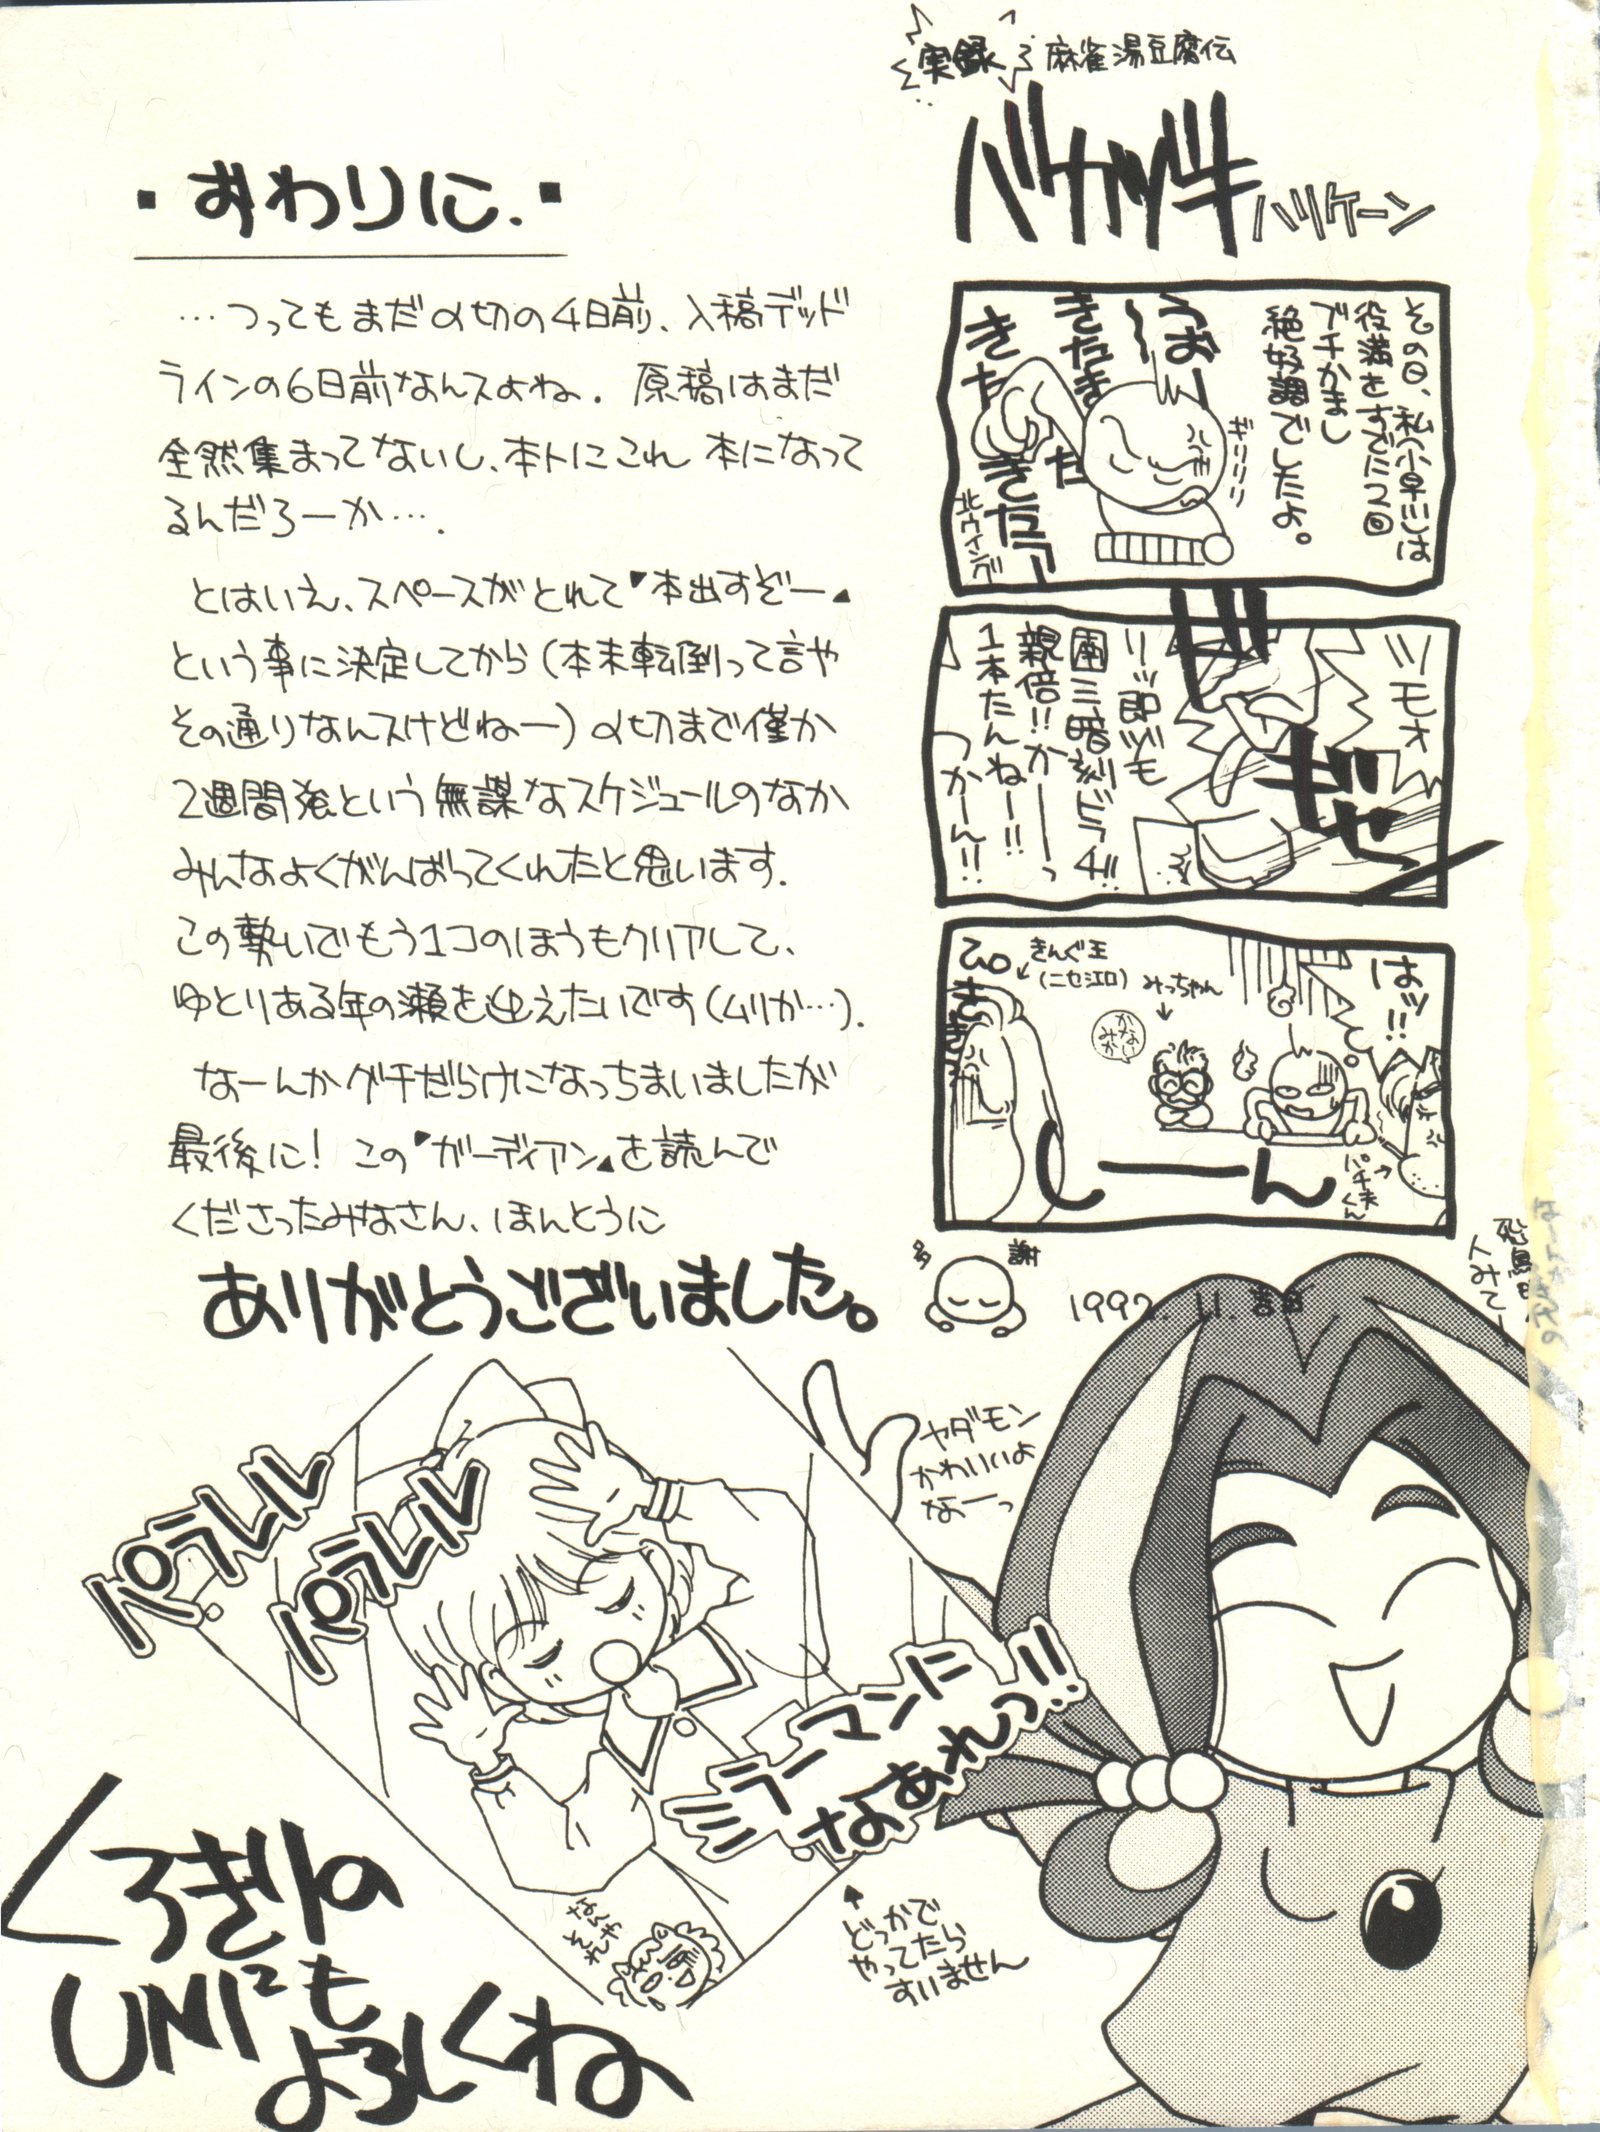 実録 麻雀湯豆腐伝
バカヅキ ハリケーン
その日、私(小早川)は
役満をすでに2回
ブチかまし
絶好調でしたよ。
うおー〜
きたきた
きたきた
きたーー
ギリリリリ
北ウィング
ツモォ
ギャン
リーッ即ヅモ
三暗刻ドラ
親倍!!かーーっ
1本たんねー!!
つかーん!!
はッ!!
きんぐ王
(ニセシエロ)
みっちゃん
パチ夫くん
しーーん
・おわりに.・
…つってもまだ〆切の4日前、入稿デッド
ラインの6日前なんスよね. 原稿はまだ
全然集まってないし、本トにこれ 本になって
るんだろーか….
とはいえ、スペースがとれて「本出すぞー」
という事に決定してから(本末転倒って言や
その通りなんスけどねー)〆切まで僅か
2週間弱という無謀なスケジュールのなか
みんなよくがんばってくれたと思います.
この勢いでもう1コのほうもクリアして、
ゆとりある年の瀬を迎えたいです(ムリか…).
なーんかグチだらけになっちまいましたが
最後に! この「ガーディアン」を読んで
くださったみなさん、ほんとうに
ありがとうございました。
多謝
1992. 11. 吉日
ヤダモン
かわいいよ
なーっ
パラレル
パラレル
ミラーマンに
なあれっ!!
どっかで
やってたら
すいません
くろきりの
UMI²も
よろしくね